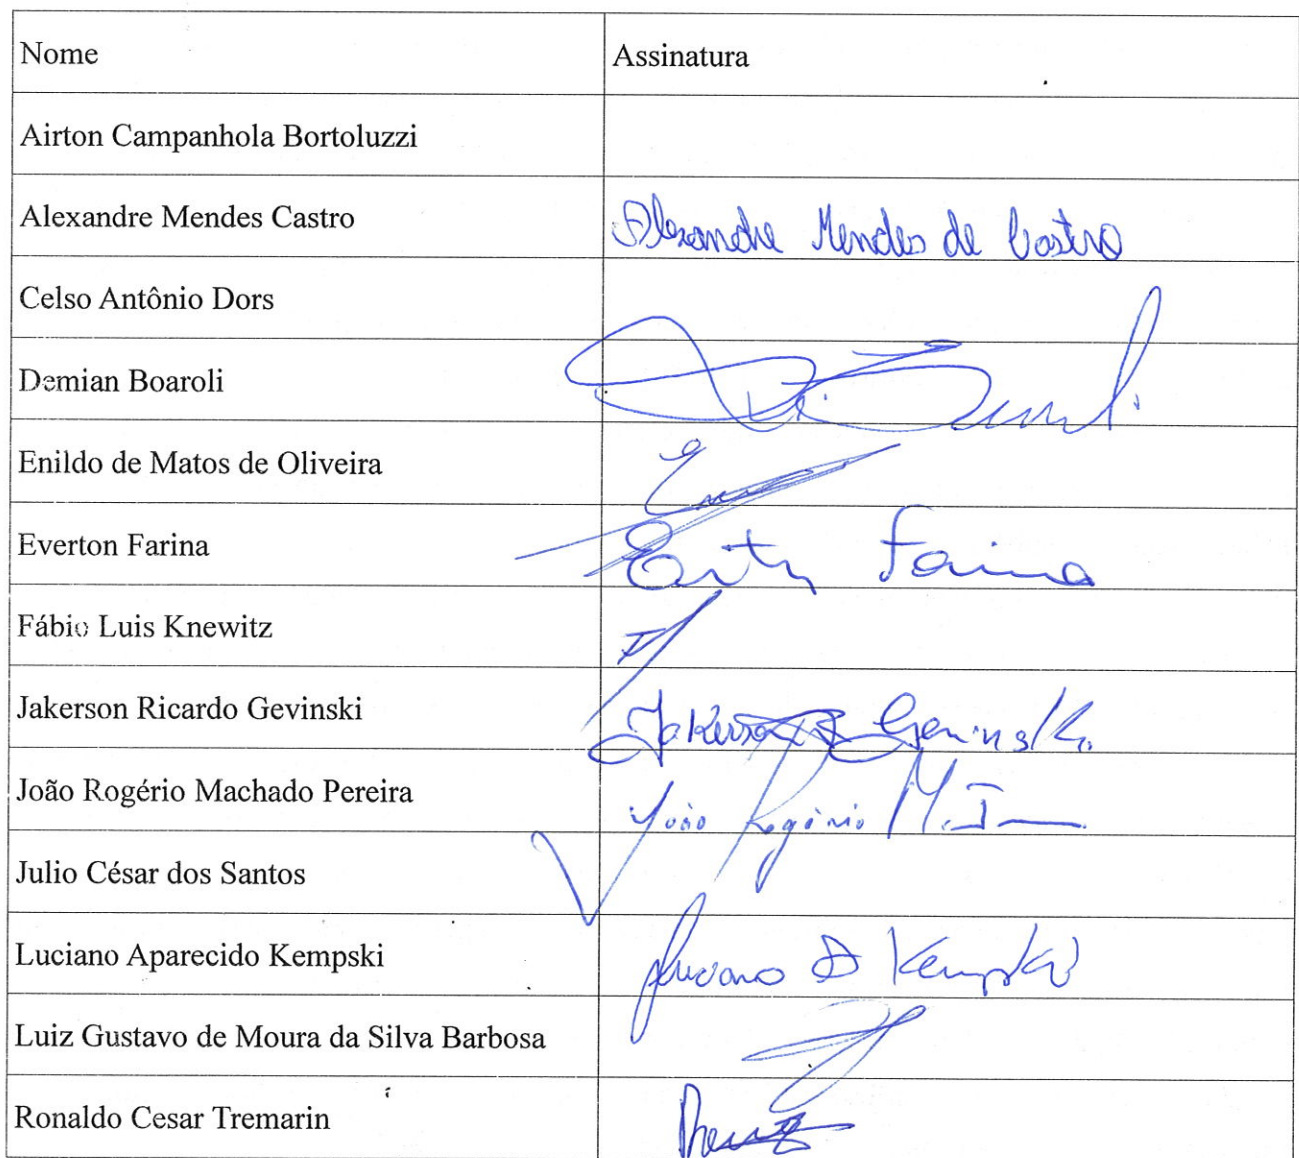 Nome Assinatura
Airton Campanhola Bortoluzzi
Alexandre Mendes Castro Alexandre Mendes de Castro
Celso Antônio Dors
Demian Boaroli
Enildo de Matos de Oliveira
Everton Farina Farina
Fábio Luis Knewitz
Jakerson Ricardo Gevinski Jakerson R Gevinski
João Rogério Machado Pereira João Rogério M.
Julio César dos Santos
Luciano Aparecido Kempski Luciano A Kempski
Luiz Gustavo de Moura da Silva Barbosa
Ronaldo Cesar Tremarin